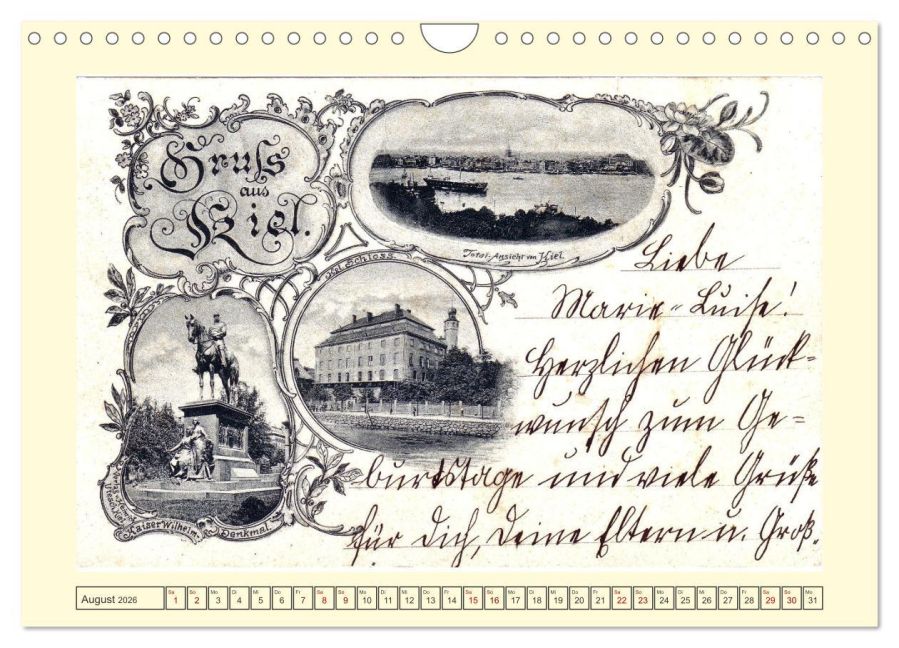 Gruß
aus
Kiel.
Total-Ansicht von Kiel.
Kgl. Schloss.
Kaiser Wilhelm-
Denkmal.
Liebe
Marie-Luise!
Herzlichen Glück-
wunsch zum Ge-
burtstage und viele Grüße
für dich, Deine Eltern u. Groß.
August 2026
Sa So Mo Di Mi Do Fr Sa So Mo Di Mi Do Fr Sa So Mo Di Mi Do Fr Sa So Mo Di Mi Do Fr Sa So Mo
1 2 3 4 5 6 7 8 9 10 11 12 13 14 15 16 17 18 19 20 21 22 23 24 25 26 27 28 29 30 31